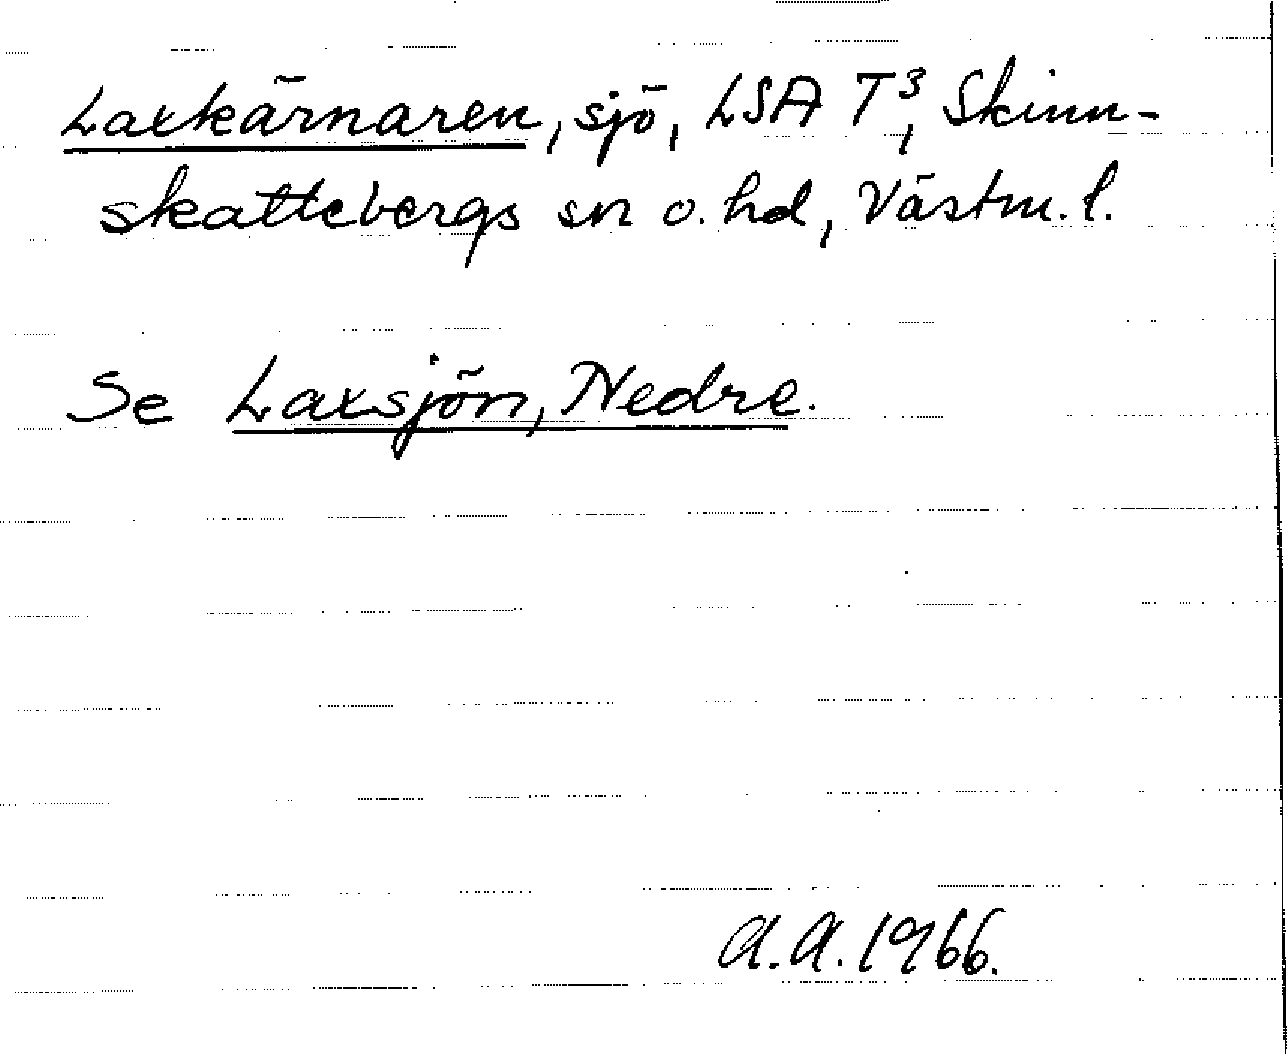 Laxkärnaren, sjö, LSA T³, Skinn-
skattebergs sn o. hd, Västm. l.
Se Laxsjön, Nedre.
A.A. 1966.